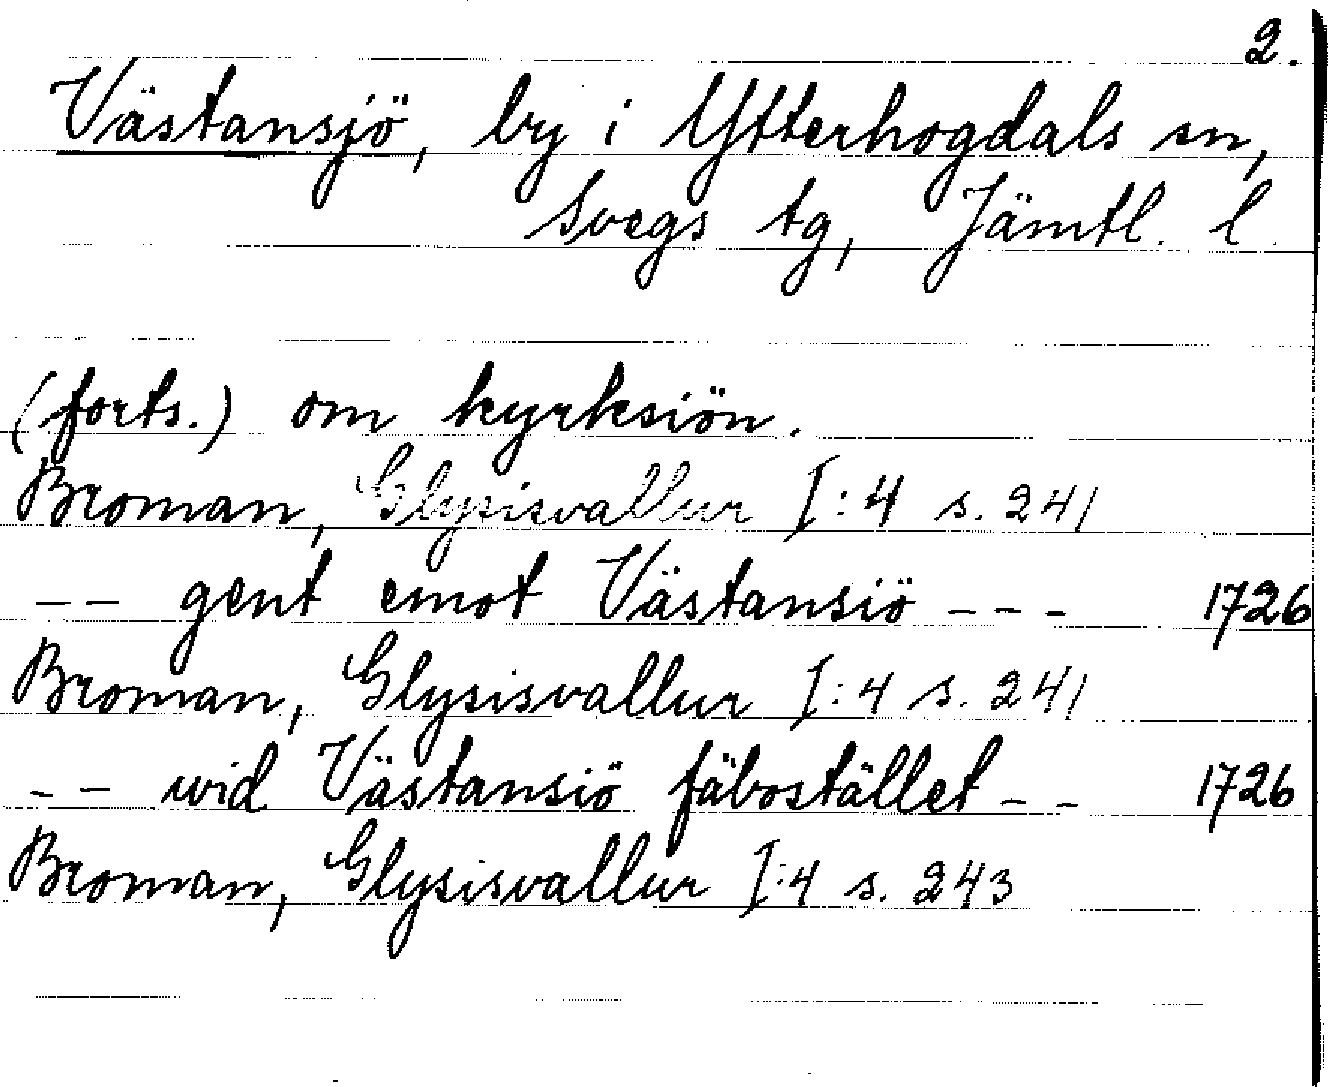 2.
Västansjö, by i Ytterhogdals sn,
Svegs tg, Jämtl. l.
(forts.) om kyrksiön.
Broman, Glysisvallur I:4 s. 241
-- gent emot Västansiö --- 1726
Broman, Glysisvallur I:4 s. 241
-- wid Västansiö fäbostället -- 1726
Broman, Glysisvallur I:4 s. 243